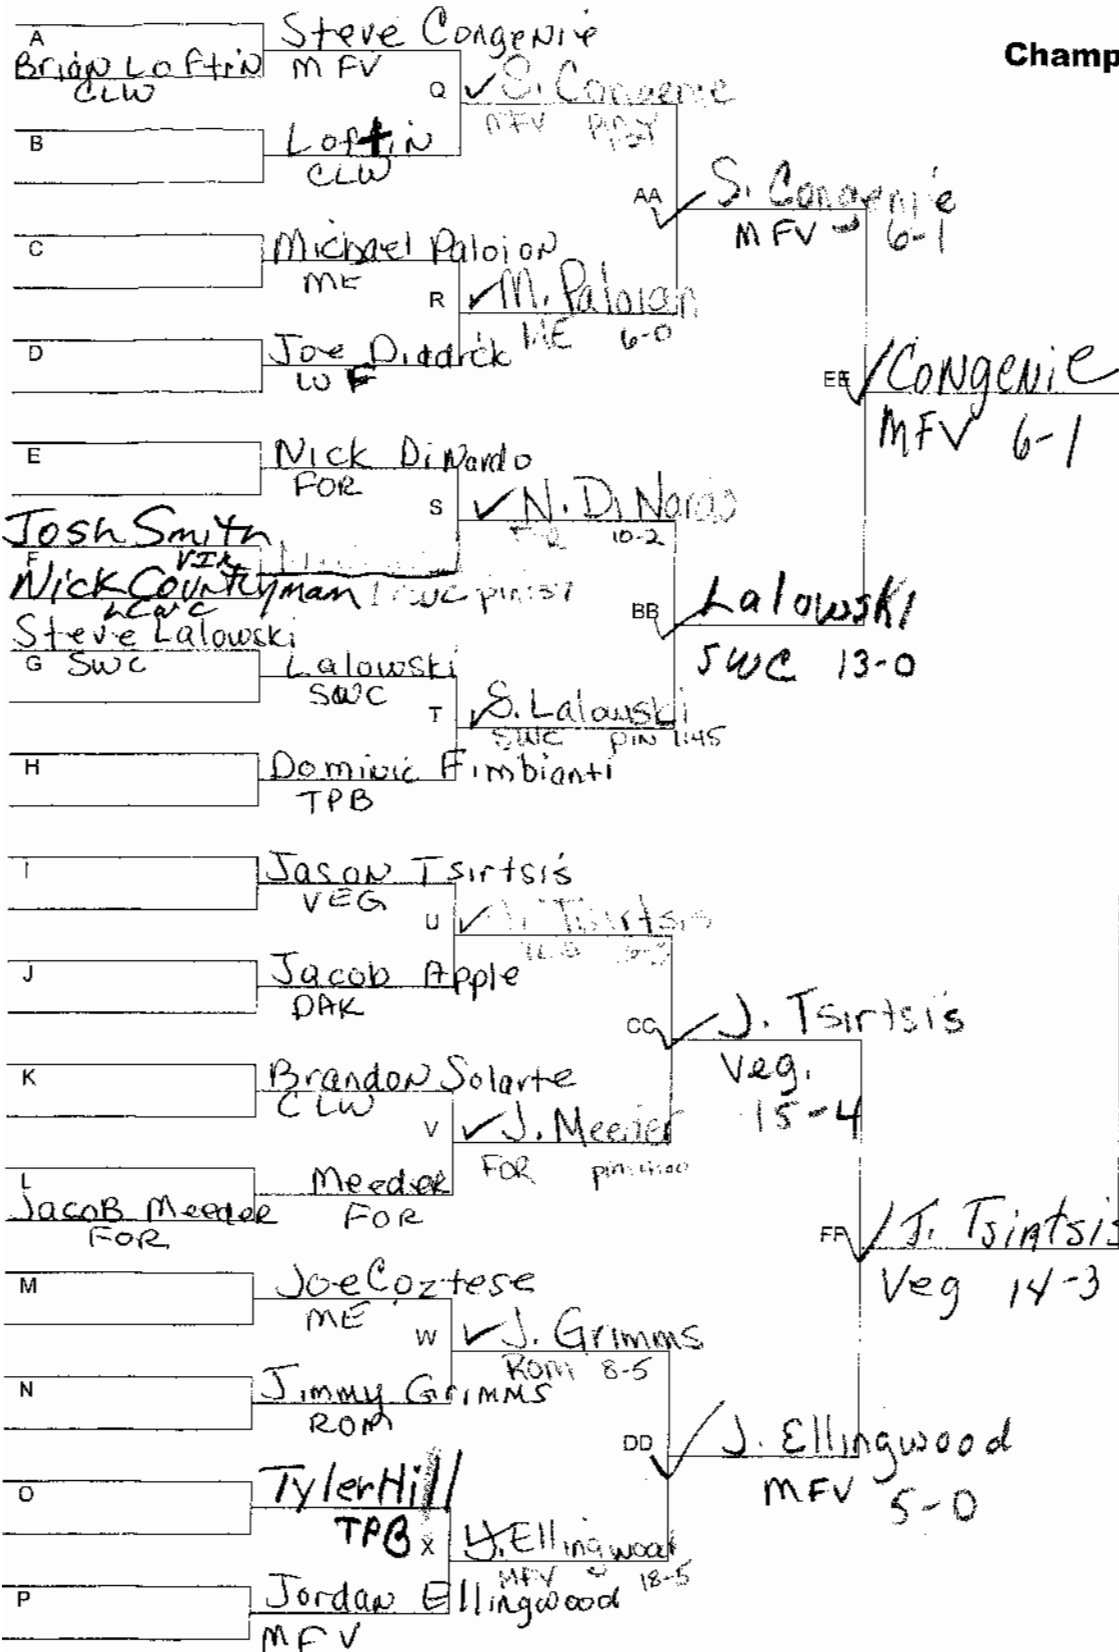 Champ
A
Brian Loftin
CLW
Steve Congenie
MFV
Q
S. Congenie
MFV pin
B
Loftin
CLW
AA
S. Congenie
MFV 6-1
C
Michael Paloion
ME
R
M. Paloian
ME 6-0
D
Joe Diddrick
WF
EE
Congenie
MFV 6-1
E
Nick DiNardo
FOR
S
N. DiNardo
10-2
Josh Smith
VIR
F
Nick Countryman
LCWC
pin :37
BB
Lalowski
SWC 13-0
Steve Lalowski
G SWC
Lalowski
SWC
T
S. Lalowski
SWC pin 1:45
H
Dominic Fimbianti
TPB
I
Jason Tsirtsis
VEG
U
Tsirtsis
J
Jacob Apple
DAK
CC
J. Tsirtsis
Veg.
15-4
K
Brandon Solarte
CLW
V
J. Meeder
FOR pin
L
Jacob Meeder
FOR
Meeder
FOR
FF
J. Tsintsis
Veg 14-3
M
Joe Coztese
ME
W
J. Grimms
Rom 8-5
N
Jimmy Grimms
ROM
DD
J. Ellingwood
MFV 5-0
O
Tyler Hill
TPB
X
J. Ellingwood
MFV 18-5
P
Jordan Ellingwood
MFV